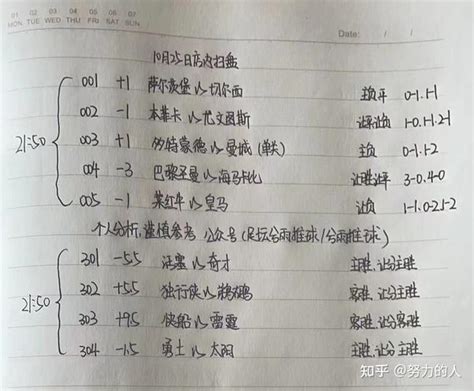 01 02 03 04 05 06 07
MON TUE WED THU FRI SAT SUN
Date: / /
10月25日店内扫盘
21:50
001 +1 萨尔茨堡 vs 切尔西 主负平 0-1.1-1
002 -1 本菲卡 vs 尤文图斯 让平让负 1-0.1-1.2-1
003 +1 多特蒙德 vs 曼城(单关) 主负 0-1.1-2
004 -3 巴黎圣曼 vs 海马卡比 让胜让平 3-0.4-0
005 -1 莱红牛 vs 皇马 让负 1-1.0-2.1-2
个人分析,谨慎参考 公众号(足坛合雨推球/合雨推球)
21:50
301 -5.5 活塞 vs 奇才 主胜.让分主胜
302 +5.5 独行侠 vs 鹈鹕 客胜.让分客胜
303 +9.5 快船 vs 雷霆 客胜.让分客胜
304 -1.5 勇士 vs 太阳 主胜.让分主胜
知乎 @努力的人